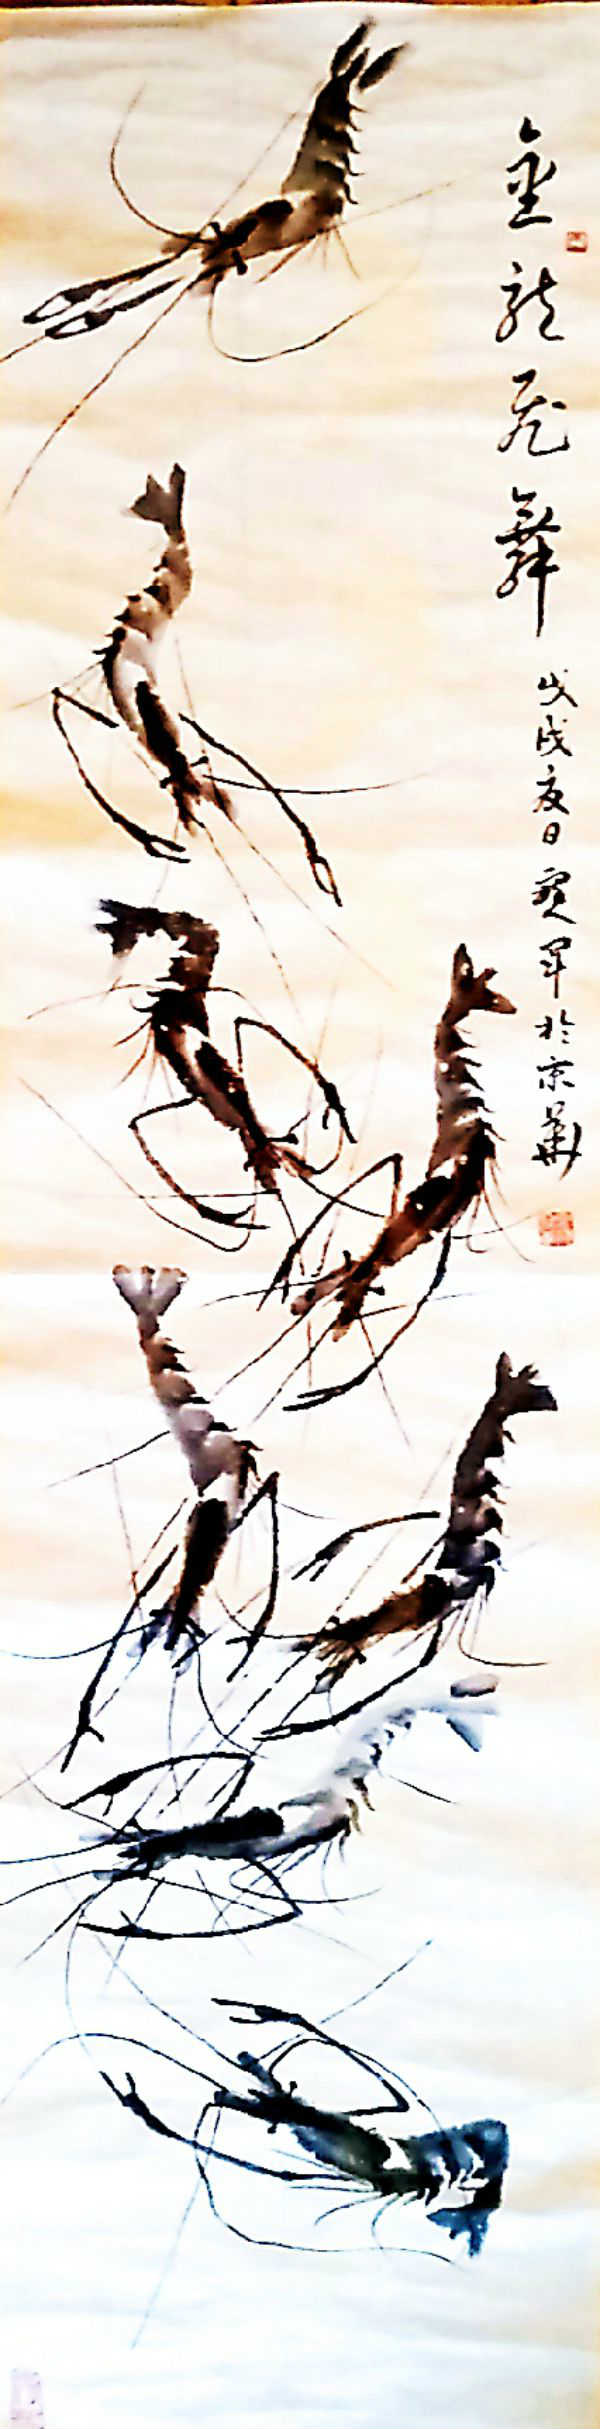 金龍飛舞
戊戌夏日寶軍於京華